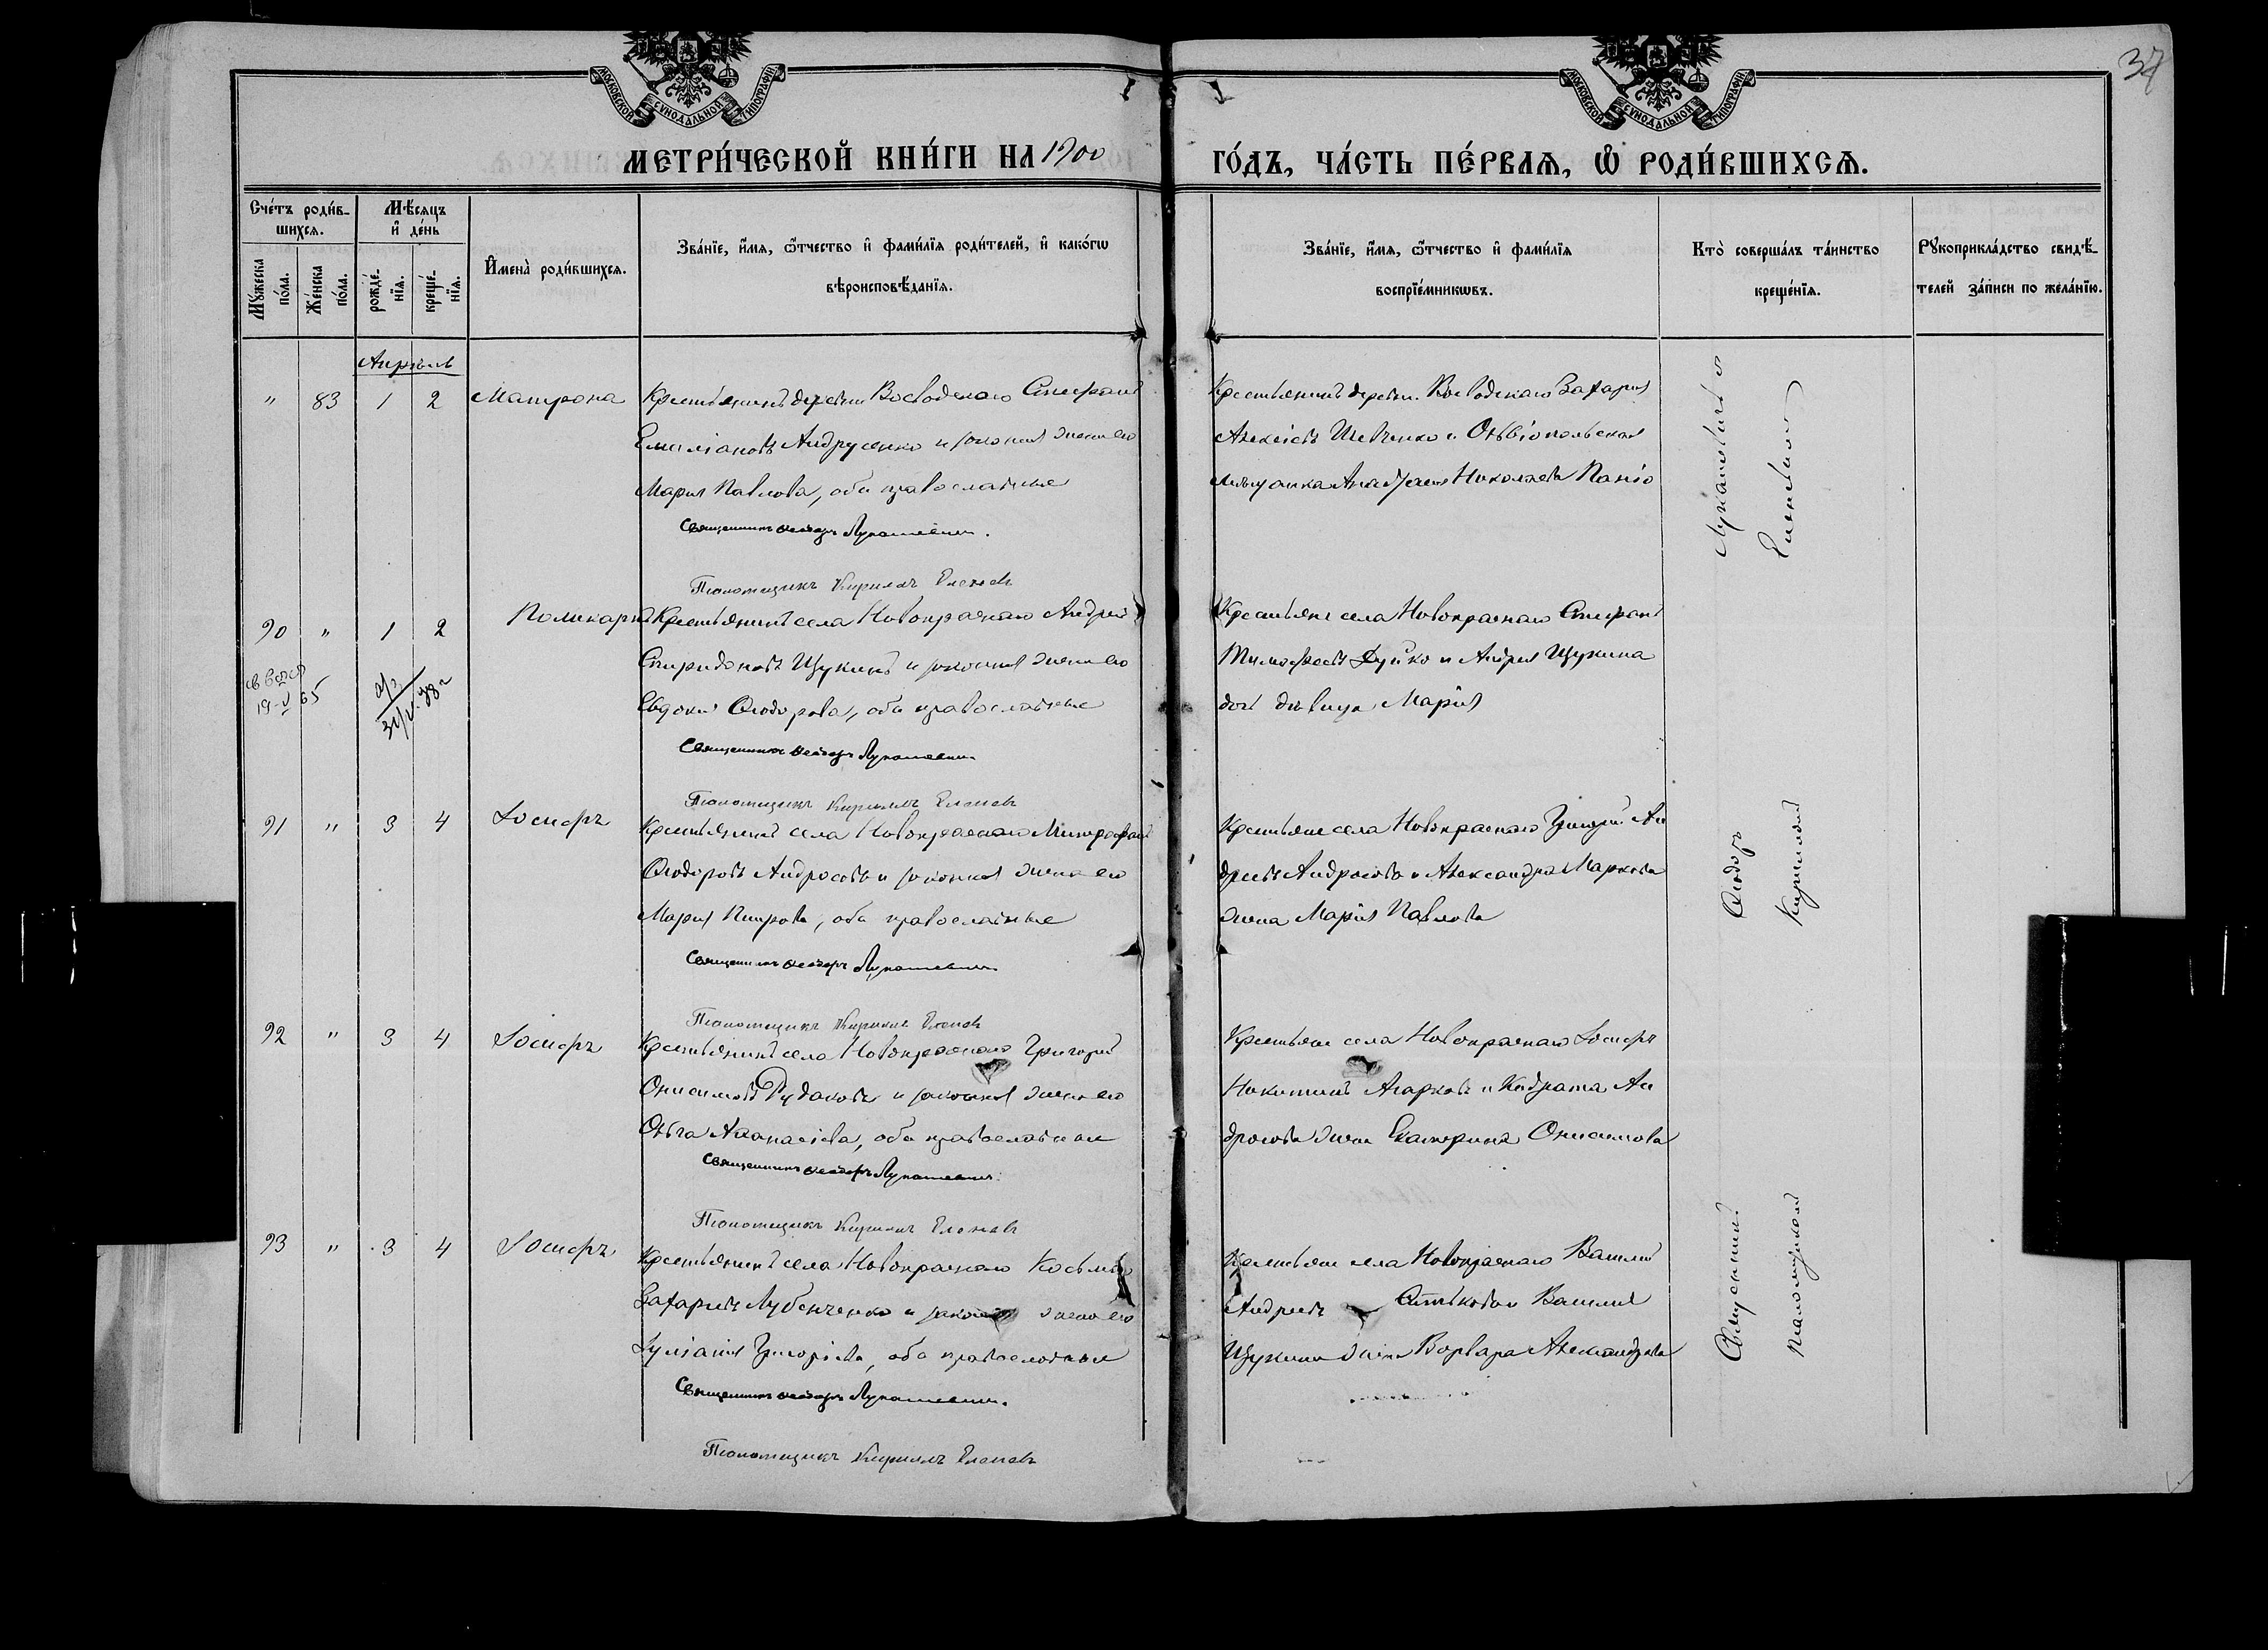 37
МОСКОВСКОЙ СУНОДАЛЬНОЙ ТИПОГРАФІИ
МОСКОВСКОЙ СУНОДАЛЬНОЙ ТИПОГРАФІИ
МЕТРИ́ЧЕСКОЙ КНИ́ГИ НА 1900 ГО́ДЪ, ЧА́СТЬ ПЕ́РВАѦ, Ѡ РОДИ́ВШИХСѦ.
Сче́тъ роди́в-
шихсѧ.
Мѣ́сѧцъ
и҆ де́нь
Мꙋ́жеска
по́ла.
Же́нска
по́ла.
рожде́-
нїѧ.
креще́-
нїѧ.
И҆мена̀ роди́вшихсѧ.
Зва́нїе, и҆́мѧ, ѻ҆́тчество и҆ фами́лїѧ роди́телей, и҆ како́гѡ
вѣроисповѣ́данїѧ.
Зва́нїе, и҆́мѧ, ѻ҆́тчество и҆ фами́лїѧ
воспрїе́мникѡвъ.
Кто̀ соверша́лъ та́инство
креще́нїѧ.
Рꙋкоприкла́дство свидѣ́-
телей за́писи по жела́нїю.
Апрѣль
" 83 1 2 Матрона Крестьянинъ деревни Воеводскаго Стефанъ
Емиліановъ Андрусенко и законная жена его
Марія Павлова, оба православные
Священникъ Ѳеодоръ Лукашевичъ.
Псаломщикъ Кириллъ Еленевъ
Крестьянинъ деревни Воеводскаго Захарія
Алексіевъ Шевченко и Ольвіопольская
мѣщанка Николаева
90 " 1 2 Поликарпъ Крестьянинъ села Новокраснаго Андрей
Спиридоновъ Щукинъ и законная жена его
Евдокія Ѳеодорова, оба православные
Священникъ Ѳеодоръ Лукашевичъ
Псаломщикъ Кириллъ Еленевъ
19-V 65
Крестьяне села Новокраснаго Стефанъ
Тимофеевъ и Андрея Щукина
дочь дѣвица Марія
91 " 3 4 Іосифъ Крестьянинъ села Новокраснаго Митрофанъ
Ѳеодоровъ Андросовъ и законная жена его
Марія Петрова, оба православные
Священникъ Ѳеодоръ Лукашевичъ
Псаломщикъ Кириллъ Еленевъ
Крестьяне села Новокраснаго Григорій Ан
дреевъ Андросовъ и Александра Маркова
жена Марія Павлова
92 " 3 4 Іосифъ Крестьянинъ села Новокраснаго Григорій
Онисимовъ Рудаковъ и законная жена его
Ольга Аѳанасіева, оба православные
Священникъ Ѳеодоръ Лукашевичъ
Псаломщикъ Кириллъ Еленевъ
Крестьяне села Новокраснаго Іосифъ
Никитинъ Агарковъ и Кодрата Ан
дросова жена Екатерина Онисимова
93 " 3 4 Іосифъ Крестьянинъ села Новокраснаго Косьма
Захаріевъ Лубенченко и законная жена его
Іуліанія Григоріева, оба православные
Священникъ Ѳеодоръ Лукашевичъ.
Псаломщикъ Кириллъ Еленевъ
Крестьяне села Новокраснаго Василій
Андреевъ и Василія
Щукина жена Варвара Александрова
Священникъ Ѳеодоръ Лукашевичъ съ
псаломщикомъ Кирилломъ Еленевымъ